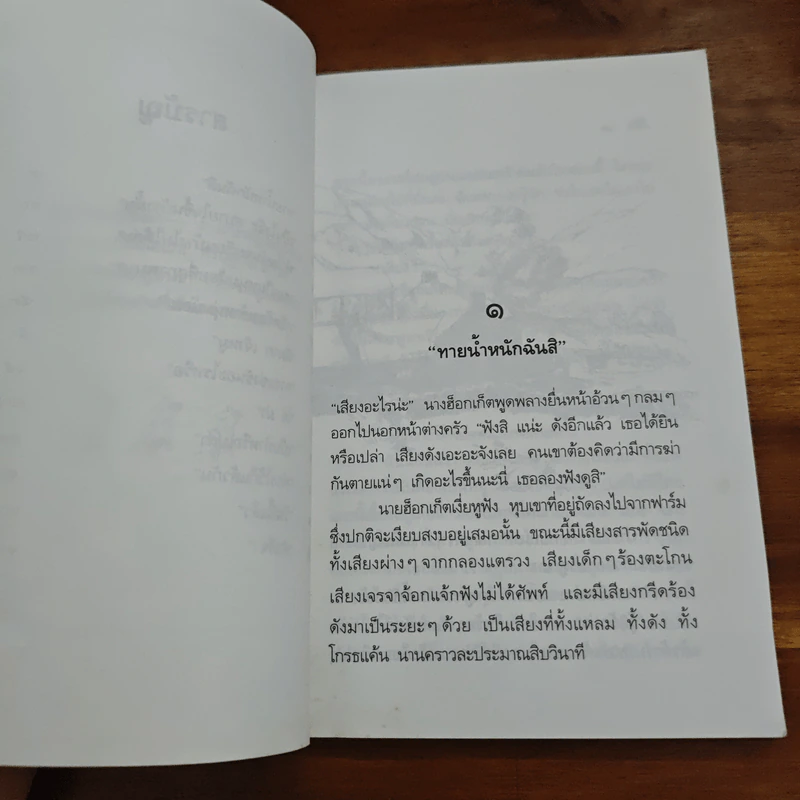 สารบัญ
๑
“ทายน้ำหนักฉันสิ”
“เสียงอะไรน่ะ” นางฮ็อกเก็ตพูดพลางยื่นหน้าอ้วนๆ กลมๆ
ออกไปนอกหน้าต่างครัว “ฟังสิ แน่ะ ดังอีกแล้ว เธอได้ยิน
หรือเปล่า เสียงดังเอะอะจังเลย คนเขาต้องคิดว่ามีการฆ่า
กันตายแน่ๆ เกิดอะไรขึ้นนะนี่ เธอลองฟังดูสิ”
นายฮ็อกเก็ตเงี่ยหูฟัง หุบเขาที่อยู่ถัดลงไปจากฟาร์ม
ซึ่งปกติจะเงียบสงบอยู่เสมอนั้น ขณะนี้มีเสียงสารพัดชนิด
ทั้งเสียงผ่างๆ จากกลองแตรวง เสียงเด็กๆ ร้องตะโกน
เสียงเจรจาจ้อกแจ้กฟังไม่ได้ศัพท์ และมีเสียงกรีดร้อง
ดังมาเป็นระยะๆ ด้วย เป็นเสียงที่ทั้งแหลม ทั้งดัง ทั้ง
โกรธแค้น นานคราวละประมาณสิบวินาที